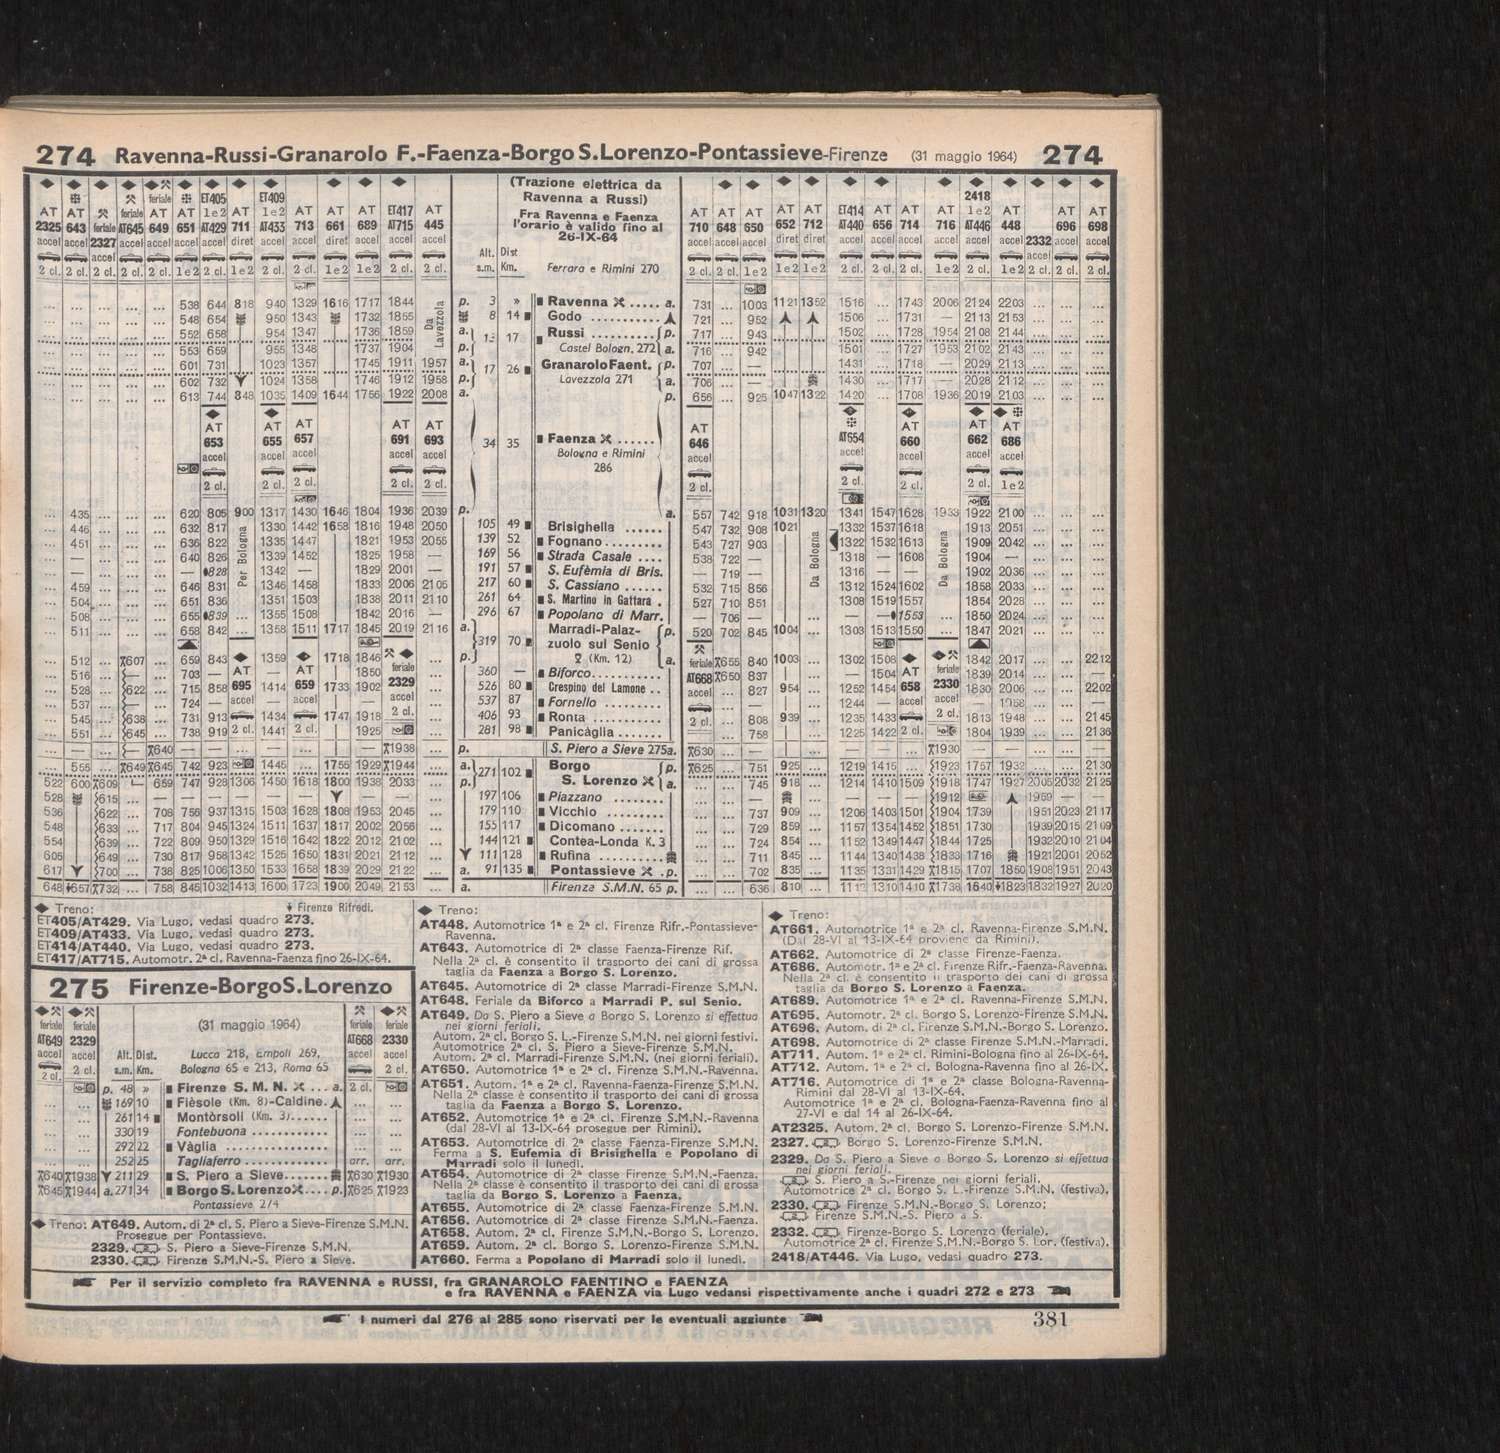 274 Ravenna-Russi-Granarolo F.-Faenza-Borgo S.Lorenzo-Pontassieve-Firenze (31 maggio 1964) 274
(Trazione elettrica da
Ravenna a Russi)
Fra Ravenna e Faenza
l'orario è valido fino al
26-IX-64
Alt. Dist
s.m. Km.
Ferrara e Rimini 270
AT AT feriale AT AT AT AT
2325 643 2327 AT645 649 651 AT429 711 AT433 713 661 689 AT715 445
710 648 650 652 712 AT440 656 714 716 AT446 448 2332 696 698
... ... ... ... ... 538 644 818 940 1329 1616 1717 1844 p. 3 » Ravenna ..... a. 731 ... 1003 1121 1352 1516 ... 1743 2006 2124 2203 ... ... ...
... ... ... ... ... 548 654 950 1343 1732 1855 8 14 Godo 721 ... 952 1506 ... 1731 — 2113 2153 ... ... ...
... ... ... ... ... 552 658 954 1347 1736 1859 a. 17 Russi p. 717 ... 943 1502 ... 1728 1954 2108 2144 ... ... ...
... ... ... ... ... 553 659 955 1348 1737 1904 p. Castel Bologn. 272 a. 716 ... 942 1501 ... 1727 1953 2102 2143 ... ... ...
... ... ... ... ... 601 731 1023 1357 1745 1911 1957 a. 17 26 Granarolo Faent. p. 707 ... — 1431 ... 1718 — 2029 2113 ... ... ...
... ... ... ... ... 602 732 1024 1358 1746 1912 1958 p. Lavezzola 271 a. 706 ... — 1430 ... 1717 — 2028 2112 ... ... ...
... ... ... ... ... 613 744 848 1035 1409 1644 1756 1922 2008 a. p. 656 ... 925 1047 1322 1420 ... 1708 1936 2019 2103 ... ... ...
Da Lavezzola
AT AT AT AT AT
653 655 657 691 693
34 35 Faenza ......
Bologna e Rimini
286
646 AT654 660 662 686
... 435 ... ... ... 620 805 900 1317 1430 1646 1804 1936 2039 p. a. 557 742 918 1031 1320 1341 1547 1628 1933 1922 2100 ... ... ...
... 446 ... ... ... 632 817 1330 1442 1658 1816 1948 2050 105 49 Brisighella ...... 547 732 908 1021 1332 1537 1618 1913 2051 ... ... ...
... 451 ... ... ... 636 822 1335 1447 1821 1953 2055 139 52 Fognano ......... 543 727 903 1322 1532 1613 1909 2042 ... ... ...
... ... ... ... 640 826 1339 1452 1825 1958 — 169 56 Strada Casale .... 538 722 — 1318 — 1608 1904 — ... ... ...
... ... ... ... — 828 1342 — 1829 2001 — 191 57 S. Eufèmia di Bris. — 719 — 1316 — — 1902 2036 ... ... ...
... 459 ... ... ... 646 831 1346 1458 1833 2006 2105 217 60 S. Cassiano ...... 532 715 856 1312 1524 1602 1858 2033 ... ... ...
... 504 ... ... ... 651 836 1351 1503 1838 2011 2110 261 64 S. Martino in Gattara . 527 710 851 1308 1519 1557 1854 2028 ... ... ...
... 508 ... ... ... 655 839 1355 1508 1842 2016 — 296 67 Popolano di Marr. — 706 — — — 1553 1850 2024 ... ... ...
... 511 ... ... ... 658 842 ... 1358 1511 1717 1845 2019 2116 a. 319 70 Marradi-Palaz- p. 520 702 845 1004 ... 1303 1513 1550 ... 1847 2021 ... ... ...
Per Bologna
Da Bologna
Da Bologna
zuolo sul Senio
... 512 ... 607 ... 659 843 1359 1718 1846 p. (Km. 12) a. 655 840 1003 ... 1302 1508 1842 2017 ... ... 2212
... 516 ... ... 703 — — 1850 360 — Biforco.......... 650 837 — 1504 1839 2014 ... ...
... 528 ... 622 ... 715 858 695 1414 659 1733 1902 2329 526 80 Crespino del Lamone .. AT668 ... 827 954 ... 1252 1454 658 2330 1830 2006 ... ... 2202
... 537 ... ... 724 — — 537 87 Fornello ......... 1244 — — 1958
... 545 ... 638 ... 731 913 1434 1747 1918 406 93 Ronta .......... ... 808 939 ... 1235 1433 1813 1948 ... ... 2145
... 551 ... 645 ... 738 919 1441 — 1925 281 98 Panicàglia ....... ... 758 ... 1225 1422 1804 1939 ... ... 2136
640 1938 p. S. Piero a Sieve 275 a. 630 1930
... 555 ... 649 645 742 923 1445 ... 1755 1929 1944 ... a. 271 102 Borgo p. 625 ... 751 925 ... 1219 1415 ... 1923 1757 1932 ... ... 2130
522 600 609 659 747 928 1306 1450 1618 1800 1938 2033 ... p. S. Lorenzo a. ... ... 745 918 ... 1214 1410 1509 1918 1747 1927 2005 2032 2125
528 615 197 106 Piazzano ........ 1912 1959
536 622 ... 708 756 937 1315 1503 1628 1808 1953 2045 ... 179 110 Vicchio ......... ... ... 737 909 ... 1206 1403 1501 1904 1739 1951 2023 2117
548 633 ... 717 804 945 1324 1511 1637 1817 2002 2056 ... 155 117 Dicomano ....... ... ... 729 859 ... 1157 1354 1452 1851 1730 1939 2015 2109
554 639 ... 722 809 950 1329 1516 1642 1822 2012 2102 ... 144 121 Contea-Londa K. 3 ... ... 724 854 ... 1152 1349 1447 1844 1725 1932 2010 2104
605 649 ... 730 817 958 1342 1525 1650 1831 2021 2112 ... 111 128 Rufina ......... ... ... 711 845 ... 1144 1340 1438 1833 1716 1921 2001 2052
617 700 ... 738 825 1006 1350 1533 1658 1839 2029 2122 ... a. 91 135 Pontassieve .p. ... ... 702 835 ... 1135 1331 1429 1815 1707 1850 1908 1951 2043
648 657 732 ... 758 845 1032 1413 1600 1723 1900 2049 2153 ... a. Firenze S.M.N. 65 p. ... ... 636 810 ... 1310 1410 1738 1640 1823 1832 1927 2020
◆ Treno: Firenze Rifredi.
ET405/AT429. Via Lugo, vedasi quadro 273.
ET409/AT433. Via Lugo, vedasi quadro 273.
ET414/AT440. Via Lugo, vedasi quadro 273.
ET417/AT715. Automotr. 2ª cl. Ravenna-Faenza fino 26-IX-64.
275 Firenze-Borgo S.Lorenzo
feriale feriale (31 maggio 1964) feriale feriale
AT649 2329 AT668 2330
accel accel Alt. Dist. Lucca 218, Empoli 269, accel accel
2 cl. 2 cl. s.m. Km. Bologna 65 e 213, Roma 65
p. 48 » Firenze S. M. N. ... a. 2 cl.
... ... 169 10 Fièsole (Km. 8)-Caldine. ... ...
... ... 261 14 Montòrsoli (Km. 3)...... ... ...
... ... 330 19 Fontebuona ............ ... ...
... ... 292 22 Vàglia ............... ... ...
... ... 252 25 Tagliaferro ............. arr. arr.
640 1938 211 29 S. Piero a Sieve....... 630 1930
645 1944 a. 271 34 Borgo S. Lorenzo.... p. 625 1923
Pontassieve 274
◆ Treno: AT649. Autom. di 2ª cl. S. Piero a Sieve-Firenze S.M.N.
Prosegue per Pontassieve.
2329. S. Piero a Sieve-Firenze S.M.N.
2330. Firenze S.M.N.-S. Piero a Sieve.
◆ Treno:
AT448. Automotrice 1ª e 2ª cl. Firenze Rifr.-Pontassieve-
Ravenna.
AT643. Automotrice di 2ª classe Faenza-Firenze Rif.
Nella 2ª cl. è consentito il trasporto dei cani di grossa
taglia da Faenza a Borgo S. Lorenzo.
AT645. Automotrice di 2ª classe Marradi-Firenze S.M.N.
AT648. Feriale da Biforco a Marradi P. sul Senio.
AT649. Da S. Piero a Sieve a Borgo S. Lorenzo si effettua
nei giorni feriali.
Autom. 2ª cl. Borgo S. L.-Firenze S.M.N. nei giorni festivi.
Automotrice 2ª cl. S. Piero a Sieve-Firenze S.M.N.
Autom. 2ª cl. Marradi-Firenze S.M.N. (nei giorni feriali).
AT650. Automotrice 1ª e 2ª cl. Firenze S.M.N.-Ravenna.
AT651. Autom. 1ª e 2ª cl. Ravenna-Faenza-Firenze S.M.N.
Nella 2ª classe è consentito il trasporto dei cani di grossa
taglia da Faenza a Borgo S. Lorenzo.
AT652. Automotrice 1ª e 2ª cl. Firenze S.M.N.-Ravenna
(dal 28-VI al 13-IX-64 prosegue per Rimini).
AT653. Automotrice di 2ª classe Faenza-Firenze S.M.N.
Ferma a S. Eufemia di Brisighella e Popolano di
Marradi solo il lunedì.
AT654. Automotrice di 2ª classe Firenze S.M.N.-Faenza.
Nella 2ª classe è consentito il trasporto dei cani di grossa
taglia da Borgo S. Lorenzo a Faenza.
AT655. Automotrice di 2ª classe Faenza-Firenze S.M.N.
AT656. Automotrice di 2ª classe Firenze S.M.N.-Faenza.
AT658. Autom. 2ª cl. Firenze S.M.N.-Borgo S. Lorenzo.
AT659. Autom. 2ª cl. Borgo S. Lorenzo-Firenze S.M.N.
AT660. Ferma a Popolano di Marradi solo il lunedì.
◆ Treno:
AT661. Automotrice 1ª e 2ª cl. Ravenna-Firenze S.M.N.
(Dal 28-VI al 13-IX-64 proviene da Rimini).
AT662. Automotrice di 2ª classe Firenze-Faenza.
AT686. Automotr. 1ª e 2ª cl. Firenze Rifr.-Faenza-Ravenna.
Nella 2ª cl. è consentito il trasporto dei cani di grossa
taglia da Borgo S. Lorenzo a Faenza.
AT689. Automotrice 1ª e 2ª cl. Ravenna-Firenze S.M.N.
AT695. Automotr. 2ª cl. Borgo S. Lorenzo-Firenze S.M.N.
AT696. Autom. di 2ª cl. Firenze S.M.N.-Borgo S. Lorenzo.
AT698. Automotrice di 2ª classe Firenze S.M.N.-Marradi.
AT711. Autom. 1ª e 2ª cl. Rimini-Bologna fino al 26-IX-64.
AT712. Autom. 1ª e 2ª cl. Bologna-Ravenna fino al 26-IX.
AT716. Automotrice di 1ª e 2ª classe Bologna-Ravenna-
Rimini dal 28-VI al 13-IX-64.
Automotrice 1ª e 2ª cl. Bologna-Faenza-Ravenna fino al
27-VI e dal 14 al 26-IX-64.
AT2325. Autom. 2ª cl. Borgo S. Lorenzo-Firenze S.M.N.
2327. Borgo S. Lorenzo-Firenze S.M.N.
2329. Da S. Piero a Sieve a Borgo S. Lorenzo si effettua
nei giorni feriali.
S. Piero a S.-Firenze nei giorni feriali.
Automotrice 2ª cl. Borgo S. L.-Firenze S.M.N. (festiva).
2330. Firenze S.M.N.-Borgo S. Lorenzo;
Firenze S.M.N.-S. Piero a S.
2332. Firenze-Borgo S. Lorenzo (feriale).
Automotrice 2ª cl. Firenze S.M.N.-Borgo S. Lor. (festiva).
2418/AT446. Via Lugo, vedasi quadro 273.
Per il servizio completo fra RAVENNA e RUSSI, fra GRANAROLO FAENTINO e FAENZA
e fra RAVENNA e FAENZA via Lugo vedansi rispettivamente anche i quadri 272 e 273
I numeri dal 276 al 285 sono riservati per le eventuali aggiunte
381